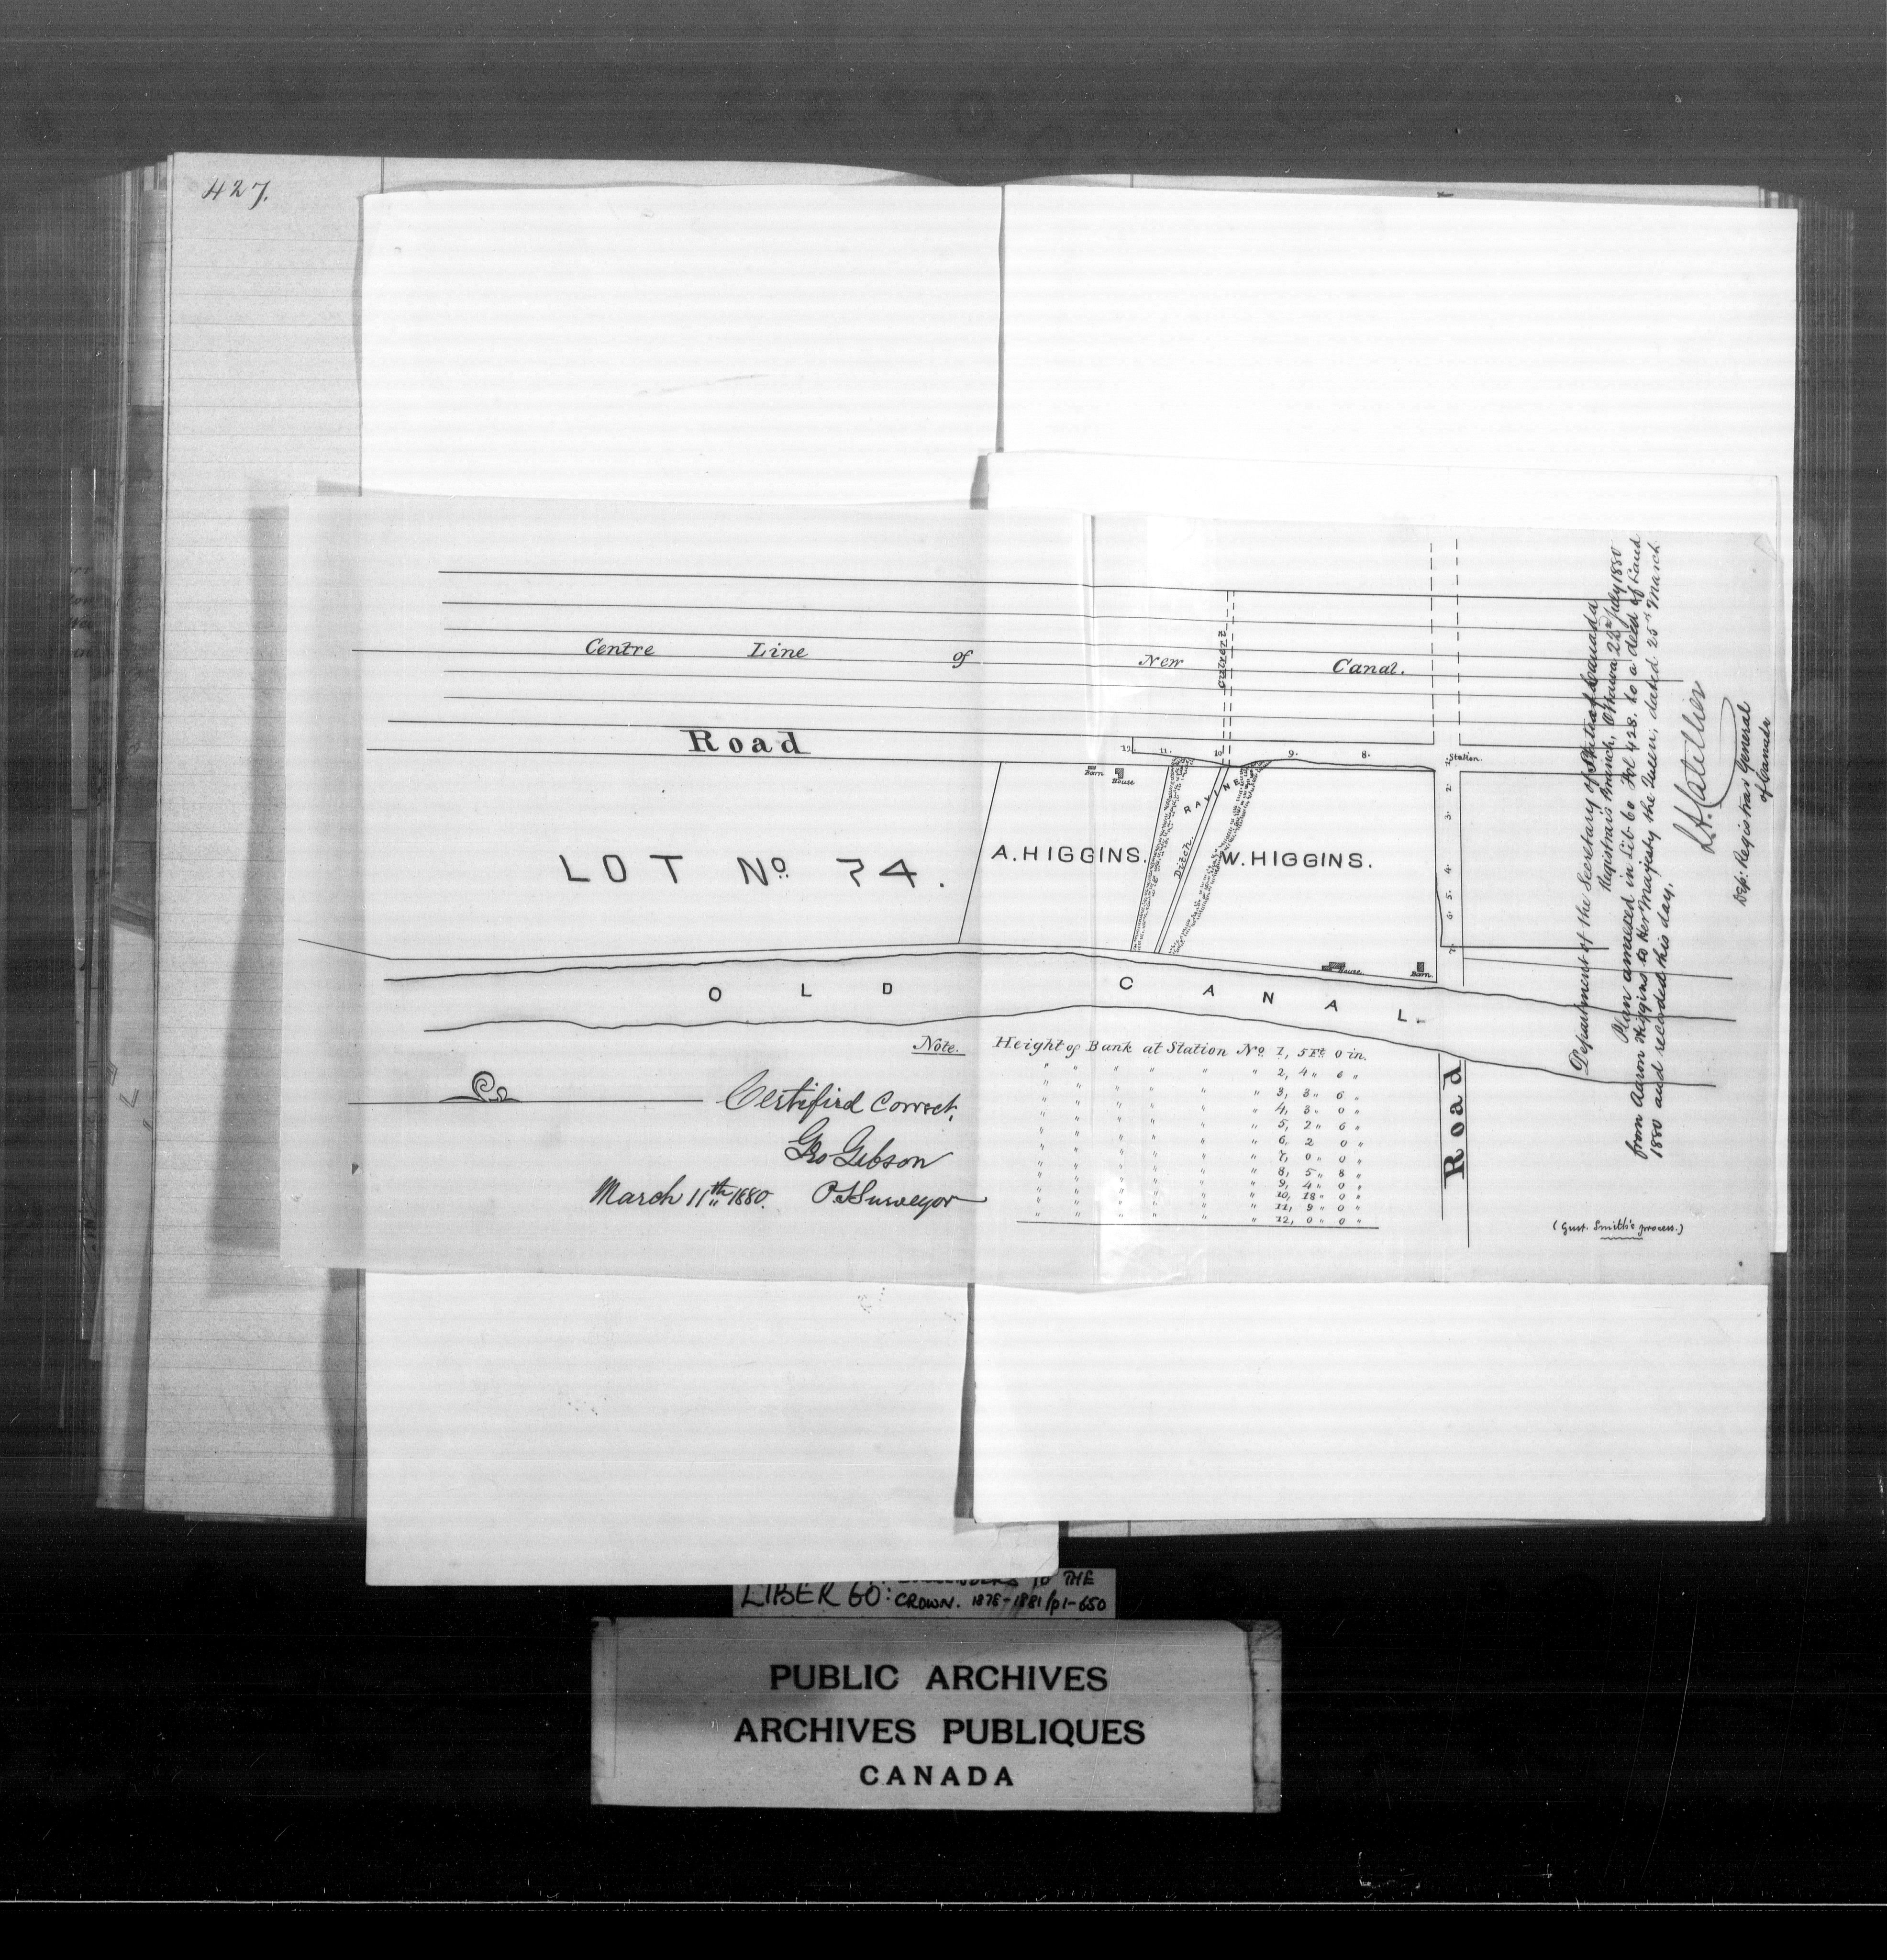 427.
Centre Line of New Canal.
Culvert
Road
12. 11. 10 9. 8. 1. Station.
Barn House
2.
3.
4.
5.
6.
7.
RAVINE
Ditch.
LOT No. 74.
A. HIGGINS.
W. HIGGINS.
House Barn
OLD CANAL.
Note. Height of Bank at Station No. 1, 5 Ft. 0 in.
" " " " " " 2, 4 " 6 "
" " " " " " 3, 3 " 6 "
" " " " " " 4, 3 " 0 "
" " " " " " 5, 2 " 6 "
" " " " " " 6, 2 0 "
" " " " " " 7, 0 " 0 "
" " " " " " 8, 5 " 8 "
" " " " " " 9, 4 " 0 "
" " " " " " 10, 18 " 0 "
" " " " " " 11, 9 " 0 "
" " " " " " 12, 0 " 0 "
Road
Certified Correct,
Geo Gibson
March 11th 1880. P. L. Surveyor
Department of the Secretary of State of Canada
Registrar's Branch, Ottawa 22d July 1880
Plan annexed in Lib 60 Fol 428. to a deed of Land
from Aaron Higgins to Her Majesty the Queen, dated 25th March
1880 and recorded this day.
L. A. Catellier
Dep: Registrar General
of Canada
(Gust. Smith's process.)
TO THE
LIBER 60: CROWN. 1878-1881/p1-650
PUBLIC ARCHIVES
ARCHIVES PUBLIQUES
CANADA